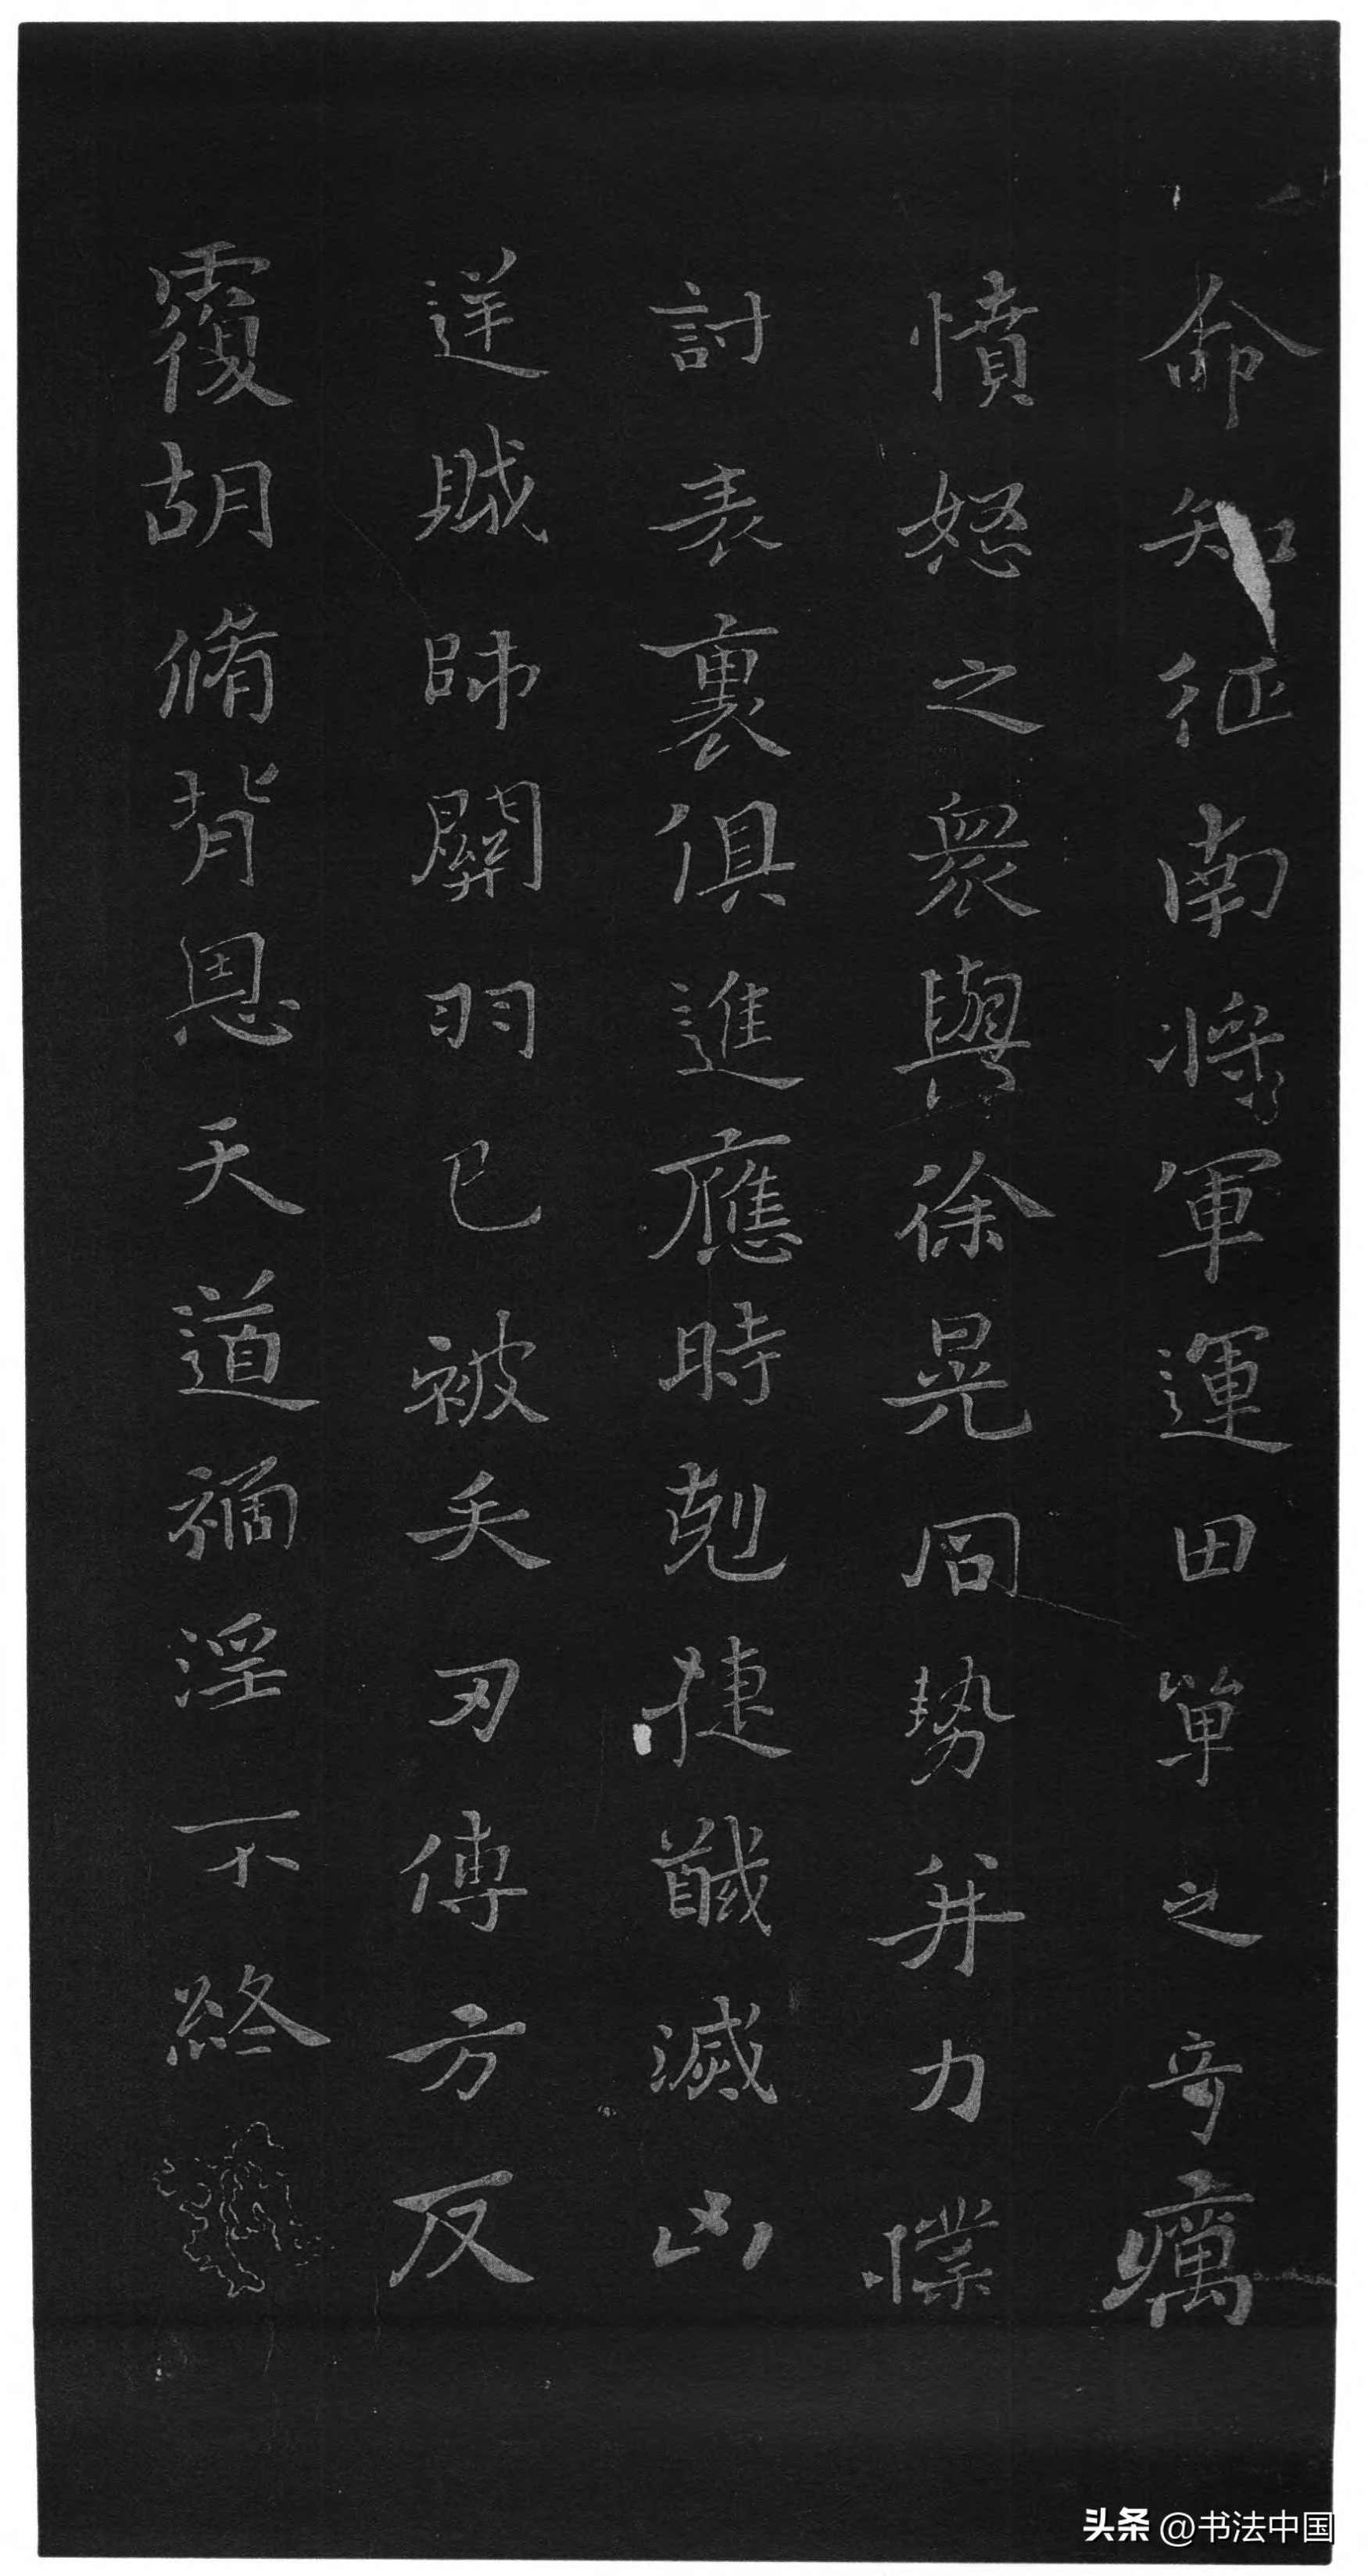 命知征南將軍運田單之奇厲
憤怒之衆與徐晃同勢并力撲
討表裏俱進應時剋捷馘滅凶
逆賊帥關羽已被矢刃傅方反
覆胡脩背恩天道禍淫不終
头条 @书法中国